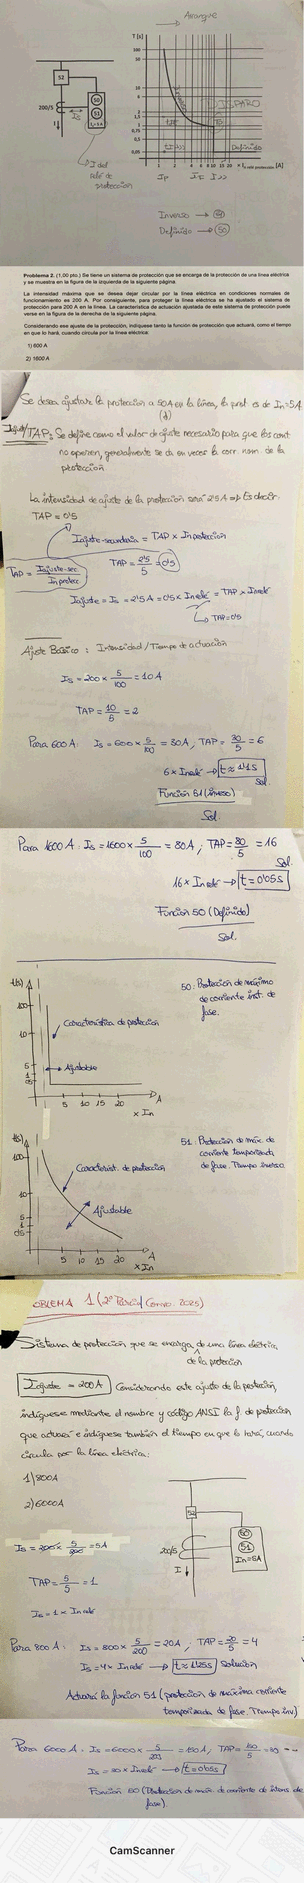 Arranque
T [s]
100
50
10
5
2
1,5
1
0,75
0,5
0,05
52
200/5
Is
50
51
In = 5 A
I
I del relé de protección
DISPARO
Inverso
Definido
1 2 4 6 8 10 15 20 x I n relé protección [A]
Inverso → 51
Definido → 50
Problema 2. (1,00 pto.) Se tiene un sistema de protección que se encarga de la protección de una línea eléctrica
y se muestra en la figura de la izquierda de la siguiente página.
La intensidad máxima que se desea dejar circular por la línea eléctrica en condiciones normales de
funcionamiento es 200 A. Por consiguiente, para proteger la línea eléctrica se ha ajustado el sistema de
protección para 200 A en la línea. La característica de actuación ajustada de este sistema de protección puede
verse en la figura de la derecha de la siguiente página.
Considerando ese ajuste de la protección, indíquese tanto la función de protección que actuará, como el tiempo
en que lo hará, cuando circula por la línea eléctrica:
1) 600 A
2) 1600 A
Se desea ajustar la protección a 50A en la línea, la prot. es de In=5A
TAP: Se define como el valor de ajuste necesario para que los cont
no operen, generalmente se da en veces la corr. nom. de la
protección
La intensidad de ajuste de la protección será 2'5A ⇒ Es decir:
TAP = 0'5
Iajuste-secundaria = TAP × Inprotección
TAP = Iajuste-sec. / Inprotecc
TAP = 2'5/5 = 0'5
Iajuste = Is = 2'5A = 0'5 × Inrelé = TAP × Inrelé
↳ TAP=0'5
Ajuste Básico: Intensidad/Tiempo de actuación
Is = 200 × 5/100 = 10A
TAP = 10/5 = 2
Para 600A: Is = 600 × 5/100 = 30A, TAP = 30/5 = 6
6 × Inrelé → t ≈ 1'1s
Sol.
Función 51 (inverso)
Sol.
Para 1600A: Is = 1600 × 5/100 = 80A; TAP = 80/5 = 16
Sol.
16 × Inrelé → t = 0'05s
Función 50 (Definido)
Sol.
t(s)
100
10
5
1
0'5
Característica de protección
Ajustable
5 10 15 20
A
× In
50: Protección de máximo
de corriente inst. de
fase.
t(s)
100
10
5
1
0'5
Característ. de protección
Ajustable
5 10 15 20
A
× In
51: Protección de máx. de
corriente temporizada
de fase. Tiempo inverso
OBLEMA 1 (2º Parcial Curso 2025)
Sistema de protección que se encarga de la protección de una línea eléctrica
Iajuste = 200A Considerando este ajuste de la protección,
indíquese mediante el nombre y código ANSI la f. de protección
que actuará e indíquese también el tiempo en que lo hará, cuando
circula por la línea eléctrica:
1) 800A
2) 6000A
52
50
51
In=5A
200/5
I
Is = 200 × 5/200 = 5A
TAP = 5/5 = 1
Is = 1 × Inrelé
Para 800A: Is = 800 × 5/200 = 20A, TAP = 20/5 = 4
Is = 4 × Inrelé → t ≈ 1'25s Solución
Actuará la función 51 (protección de máxima corriente
temporizada de fase. Tiempo inv)
Para 6000A: Is = 6000 × 5/200 = 150A, TAP = 150/5 = 30
Is = 30 × Inrelé → t = 0'05s
Función 50 (Protección de máx. de corriente de intens de
fase).
CamScanner